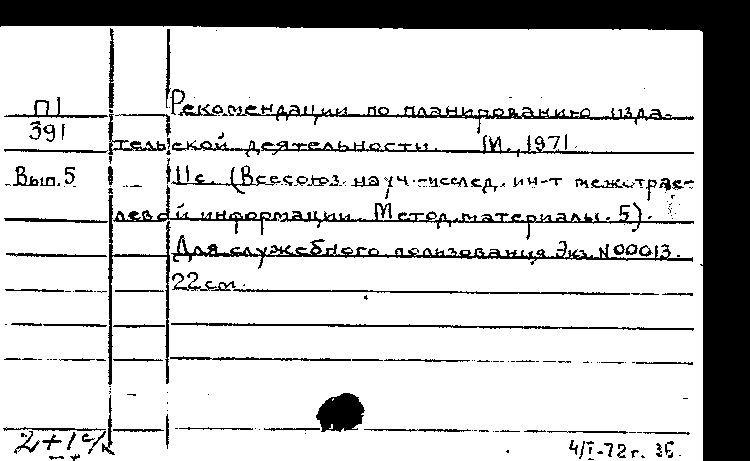 П1
391
Вып. 5
Рекомендации по планированию изда-
тельской деятельности. М., 1971.
11с. (Всесоюз. науч-исслед. ин-т межотрас-
левой информации. Метод. материалы. 5).
Для служебного ползования Экз. N00013.
22 см.
2+1
4/I-72г.